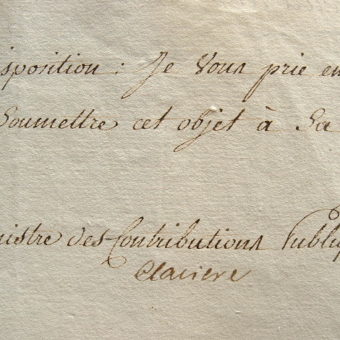 isposition : Je Vous prie en
Soumettre cet objet à Sa
nistre des Contributions Publiq
Claviere